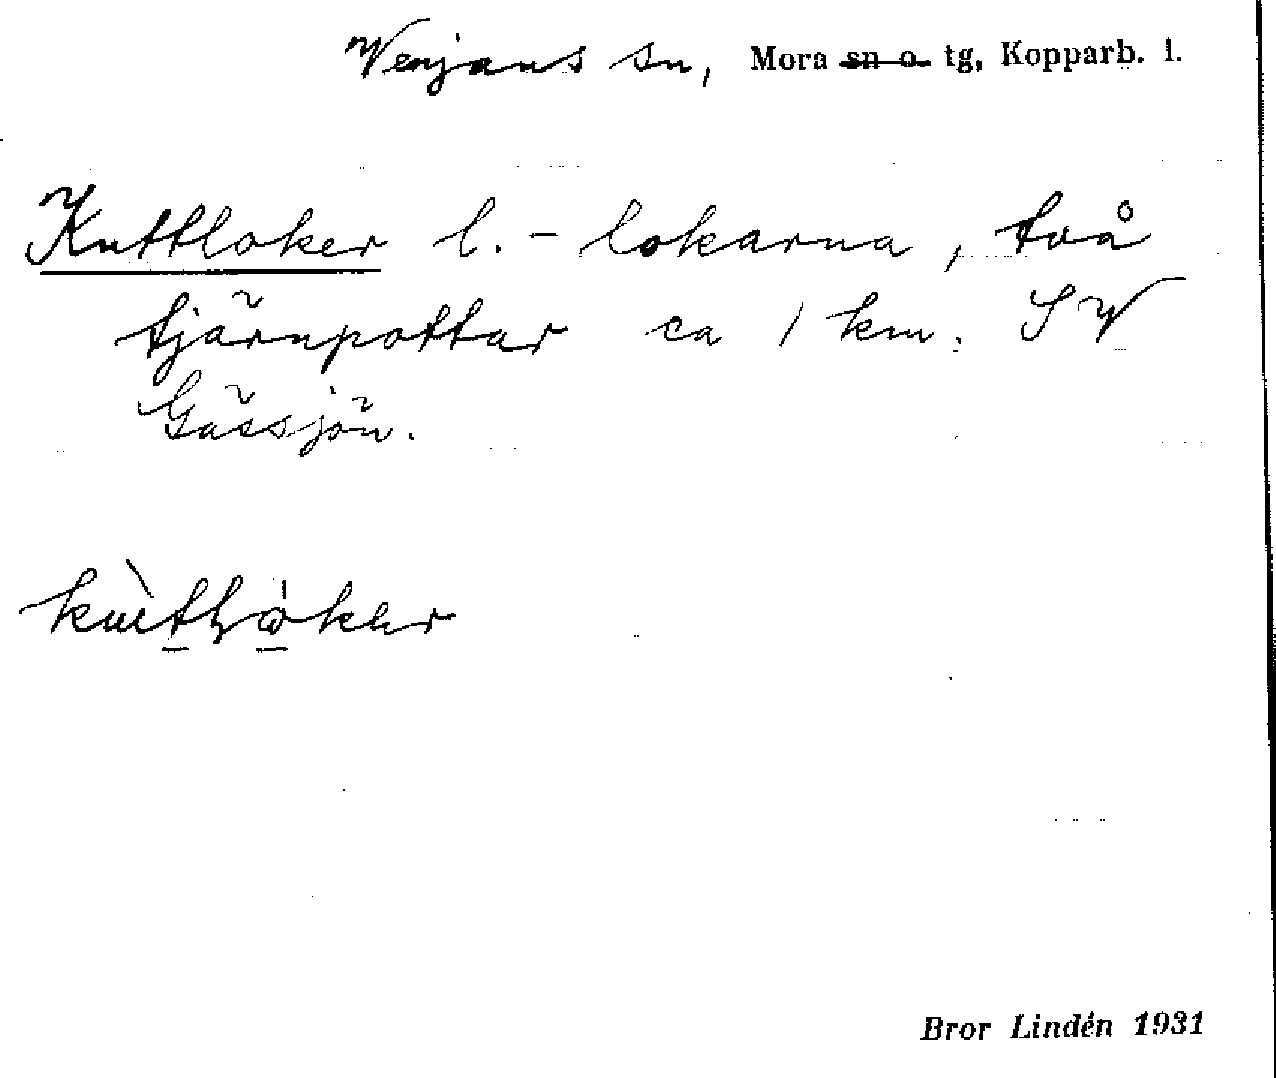 Venjans sn, Mora sn o. tg, Kopparb. l.
Kuttloker l. -lokarna, två
tjärnpottar ca 1 km. SV
Gässjön.
Bror Lindén 1931